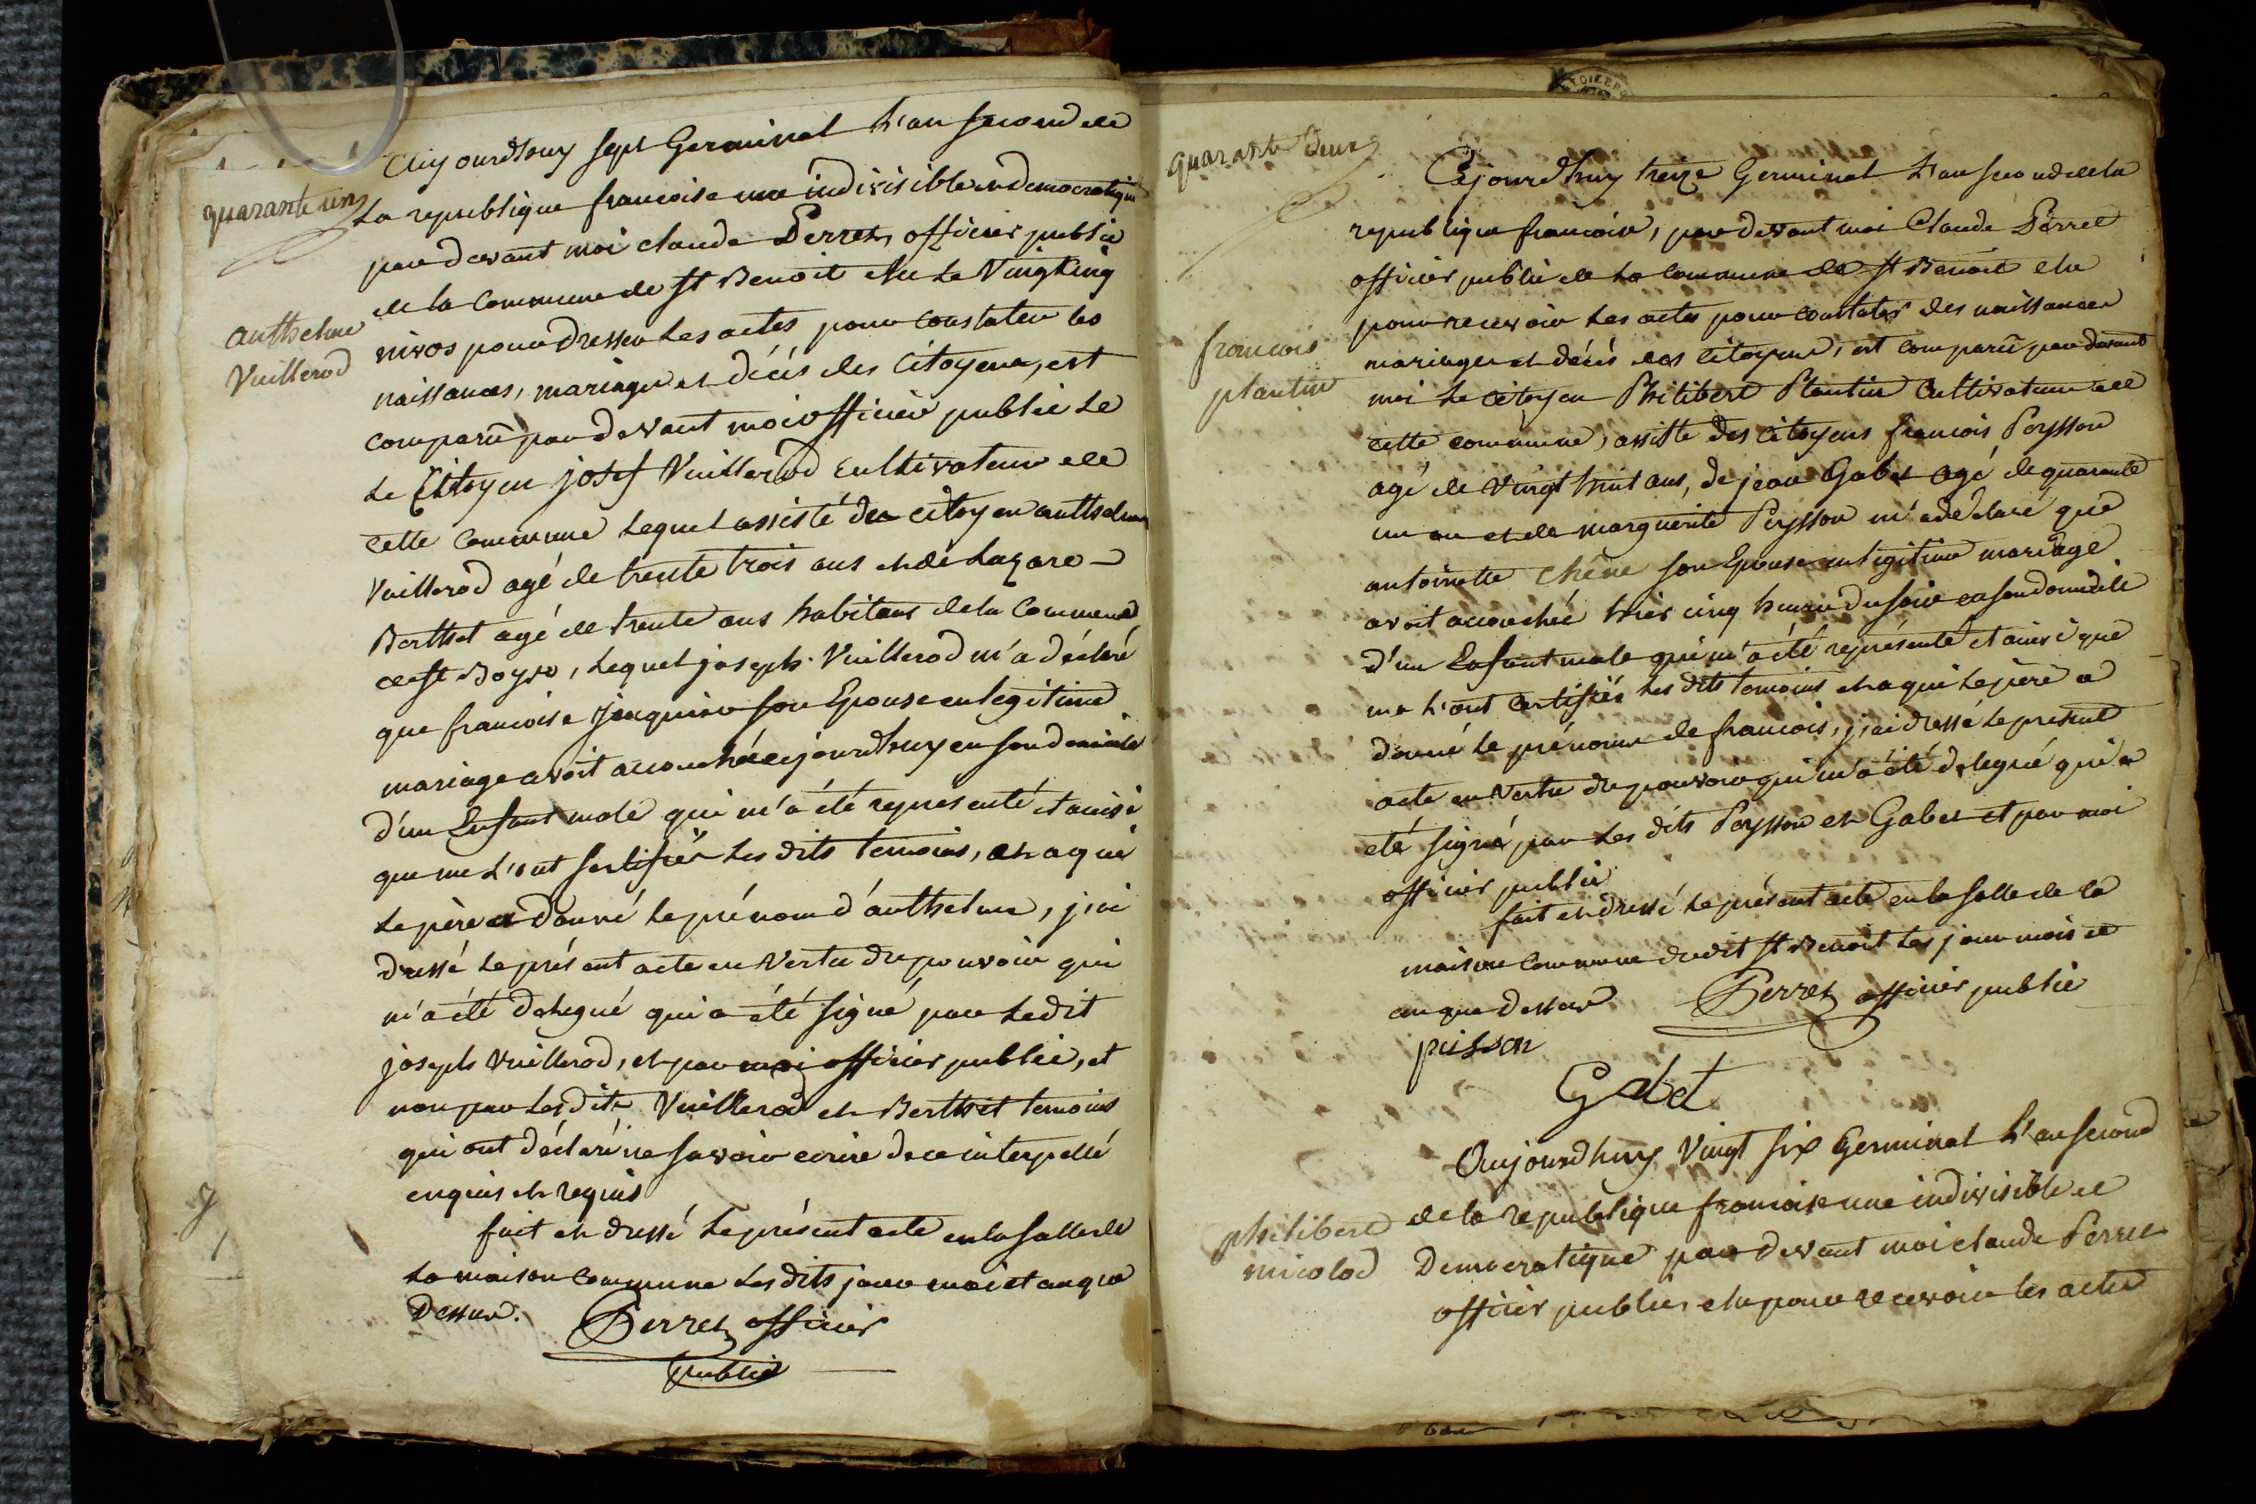 quarante un
anthelme
Vuillerod
Aujourdhuy sept Germinal L'an second de
la republique francoise une indivisible et democratique
par devant moi claude Perret, officier public
de la Commune de St Benoit elu le Vingt cinq
nivos pour dresser les actes pour constater les
naissances, mariages et décés des Citoyens, est
comparû par devant moi officier public le
le Citoyen josef Vuillerod Cultivateur de
cette Commune lequel assisté du citoyen anthelme
Vuillerod agé de trente trois ans et de Lazare
Berthet agé de trente ans habitans de la Commune
de St Boys, lequel joseph Vuillerod m'a déclaré
que francoise Jonquier son Epouse en legitime
mariage avoit accouchée cejourdhuy en son domicile
d'un Enfant male qui m'a été representé et ainsi
que me l'ont sertifiés les dits temoins, et a qui
le père a donné le prénom d'anthelme, j'ai
dressé le présent acte en Vertu du pouvoir qui
m'a été delegué qui a été signé par ledit
joseph Vuillerod, et par moi officier public, et
non par lesdits Vuillerod et Berthet temoins
qui ont déclaré ne savoir ecrire de ce interpellé
enquis et requis
fait et dressé le présent acte en la salle de
la maison Commune les dits jour mois et an que
dessus. Perret officier
public
quarante deux
francois
plantin
Cejourdhuy treize Germinal L'an second de la
republique francoise, par devant moi Claude Perret
officier public de la commune de St Benoit elu
pour recevoir les actes pour constater des naissances
mariages et décés des Citoyens, est comparû par devant
moi le citoyen Philibert Plantin Cultivateur de
cette commune, assisté des citoyens francois Peysson
agé de vingt huit ans, de jean Gabet agé de quarante
un an et de marguerite Peysson m'a déclaré que
antoinette chêne son Epouse en legitime mariage
avoit accouchée hier cinq heures du soir en son domicile
d'un Enfant male qui m'a été représenté et ainsi que
me l'ont certifiés les dits temoins et a qui le père a
donné le prénom de francois, j'ai dressé le present
acte en Vertu du pouvoir qui m'a été delegué qui a
eté signé par les dits Peysson et Gabet et par moi
officier public
fait et dressé le présent acte en la salle de la
maison commune dudit St Benoit les jour mois et
an que dessus Perret officier public
pisson
Gabet
philibert
micolod
Aujourdhuy Vingt six Germinal L'an second
de la republique francoise une indivisible et
Democratique par devant moi claude Perret
officier public, elu pour recevoir les actes